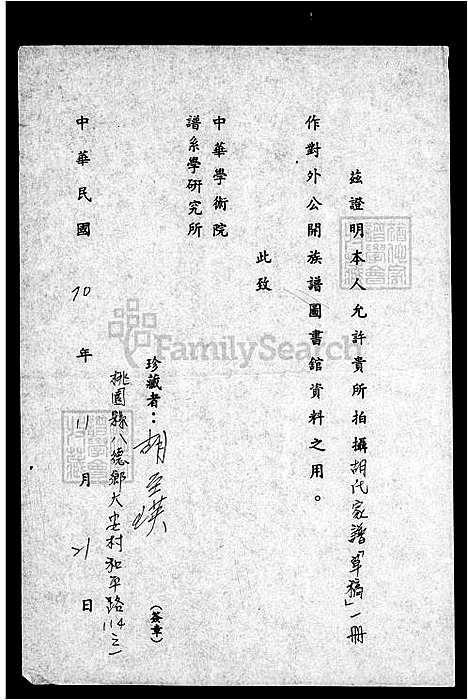 茲證明本人允許貴所拍攝胡氏家譜「草稿」一冊
作對外公開族譜圖書館資料之用。
此致
中華學術院
譜系學研究所
珍藏者：胡至瑛
桃園縣八德鄉大安村和平路114之1
(簽章)
中華民國70年11月21日
FamilySearch